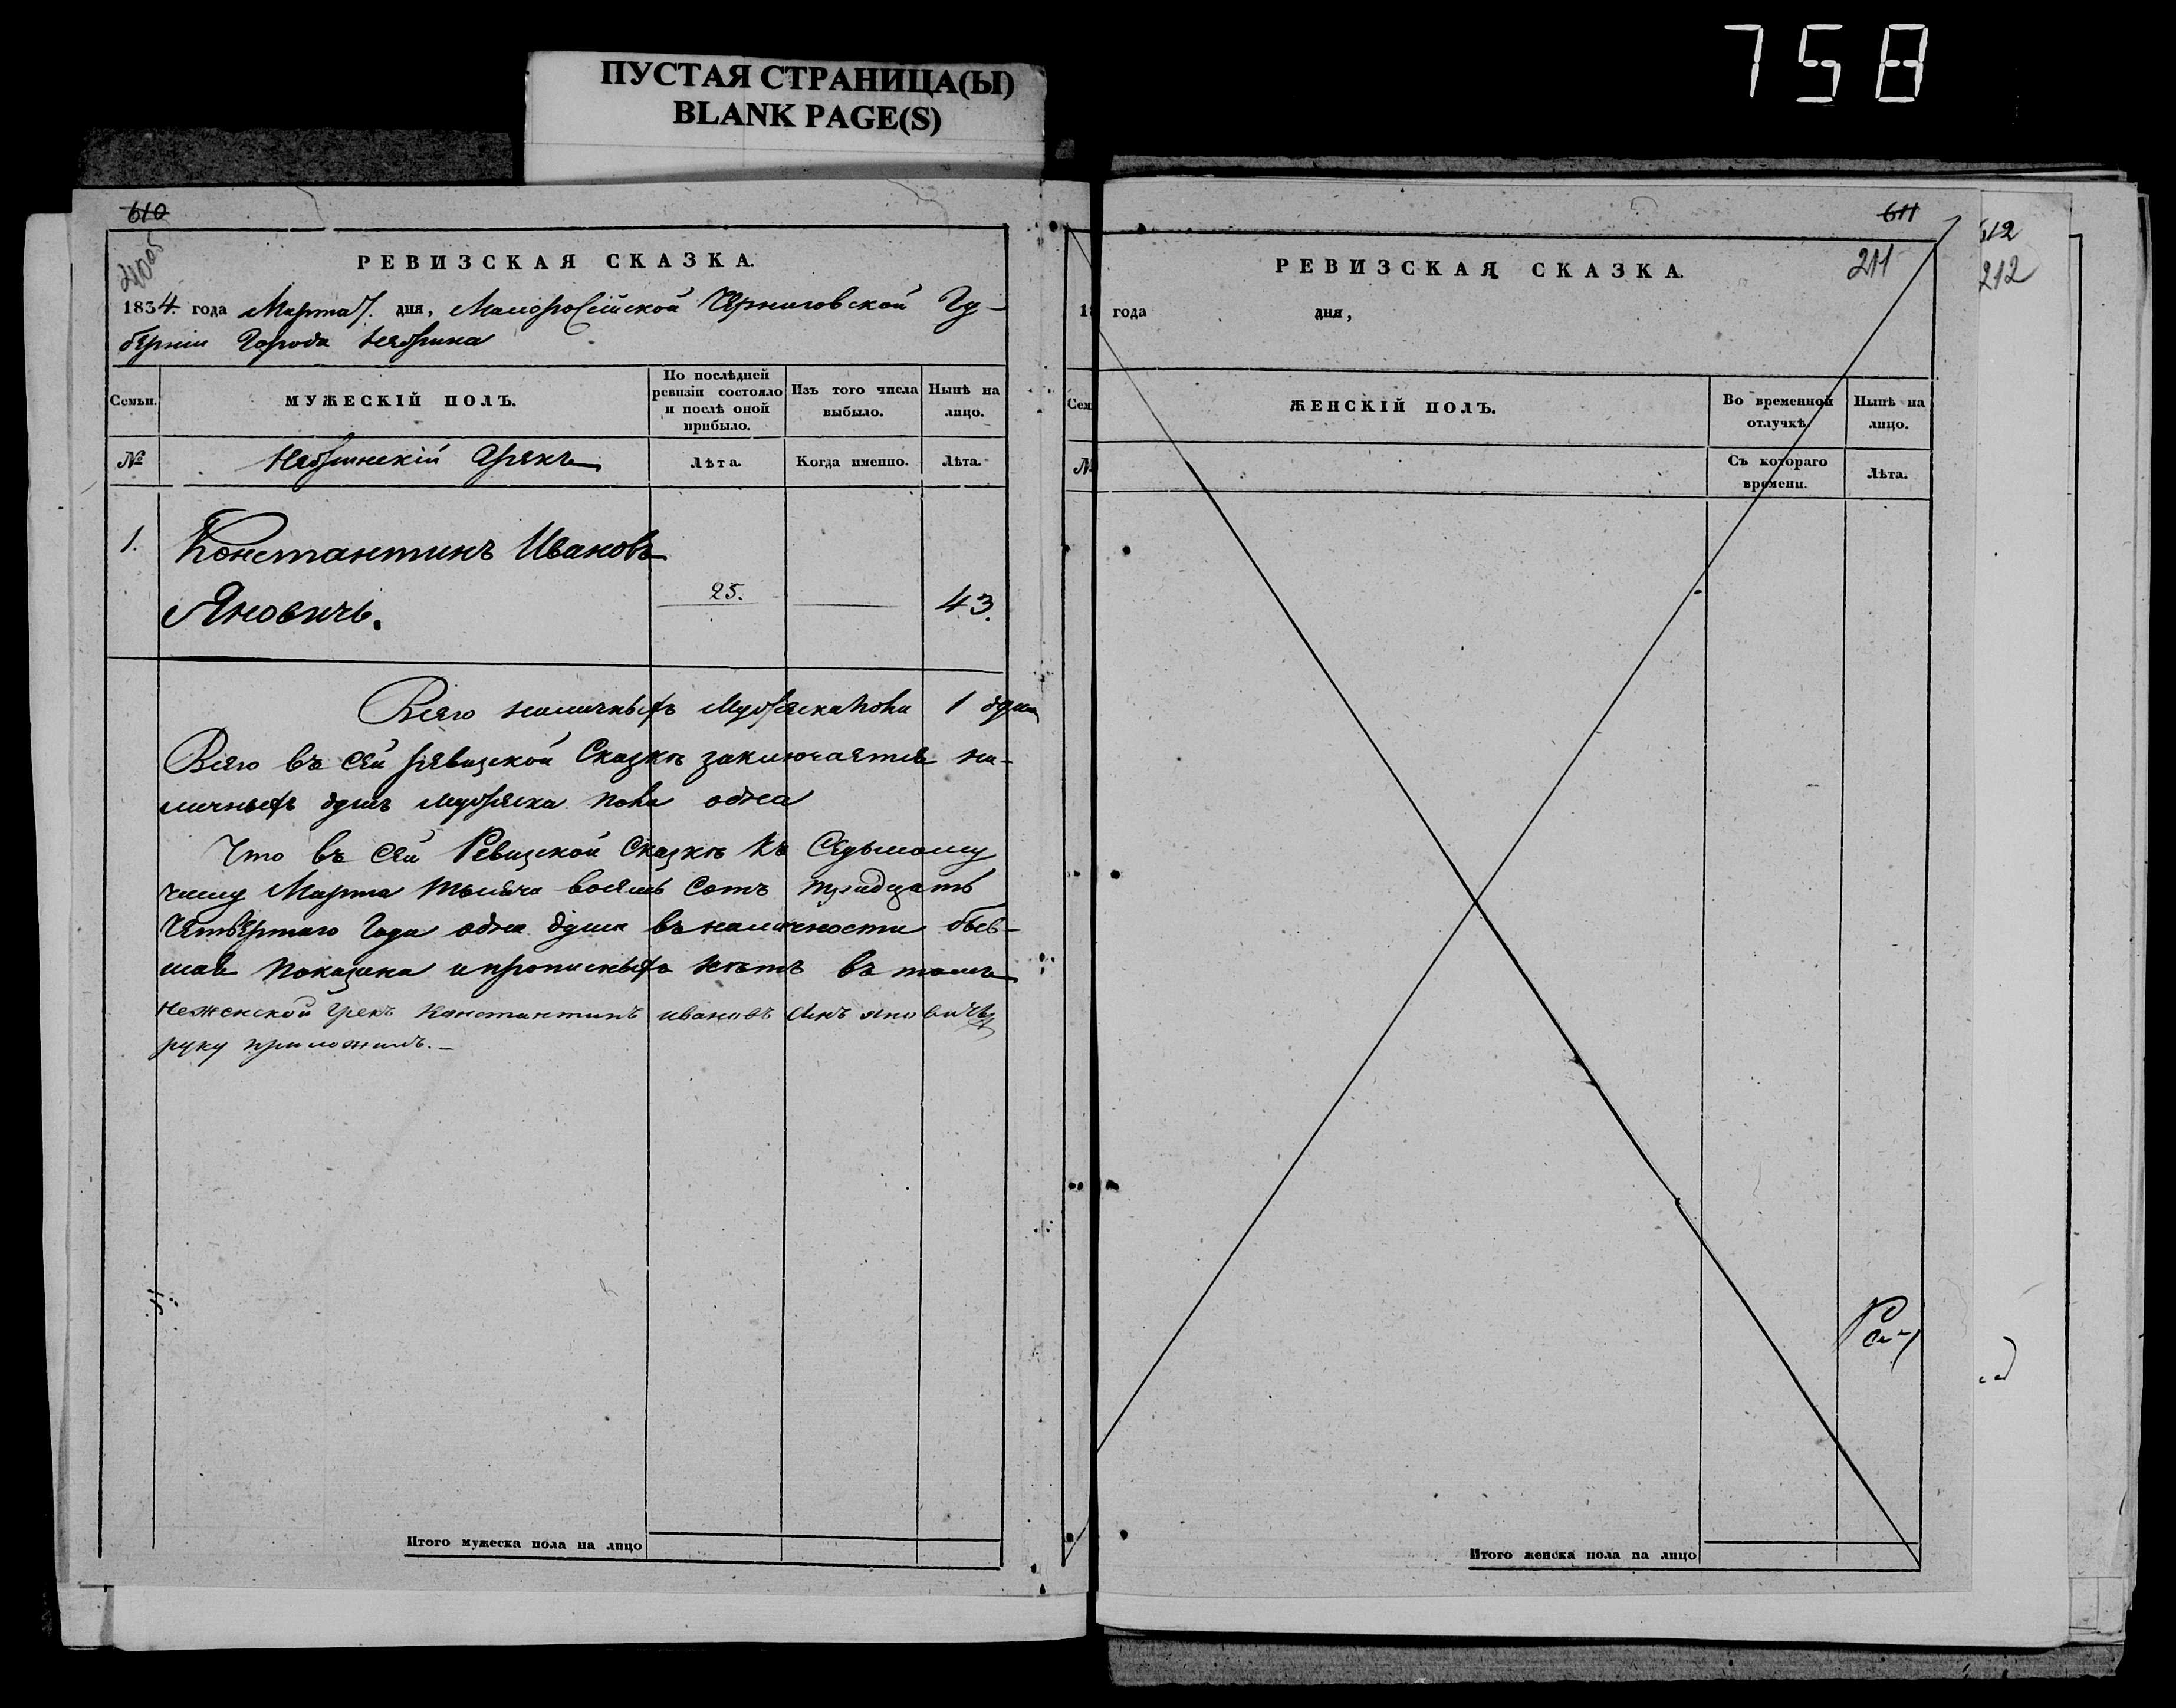 758
ПУСТАЯ СТРАНИЦА(Ы)
BLANK PAGE(S)
610
РЕВИЗСКАЯ СКАЗКА.
1834. года Марта 7. дня, Малоросійской Черниговской Гу-
берніи Города Нѣжина
Семьи.
МУЖЕСКІЙ ПОЛЪ.
По послѣдней ревизіи состояло и послѣ оной прибыло.
Изъ того числа выбыло.
Нынѣ на лицо.
№
Нѣжинскій Грекъ
Лѣта.
Когда именно.
Лѣта.
1.
Константинъ Ивановъ
Яновичь.
25.
43.
Всего наличныхъ Мужеска пола 1 душа
Всего въ сей ревизской Сказкѣ заключается на-
личныхъ душъ мужеска пола одна
Что въ сей Ревизской Сказкѣ къ Седьмому
числу Марта тысяча восемь сотъ тридцать
Четвертаго Года одна душа въ наличности быв-
шая показана и прописныхъ нѣтъ въ томъ
Неженской Грекъ Константинъ ивановъ сынъ яновичъ
руку приложилъ.—
Итого мужеска пола на лицо
611
211
РЕВИЗСКАЯ СКАЗКА.
18 года дня,
Сем
ЖЕНСКІЙ ПОЛЪ.
Во временной отлучкѣ.
Нынѣ на лицо.
№
Съ котораго времени.
Лѣта.
Итого женска пола на лицо
612
212